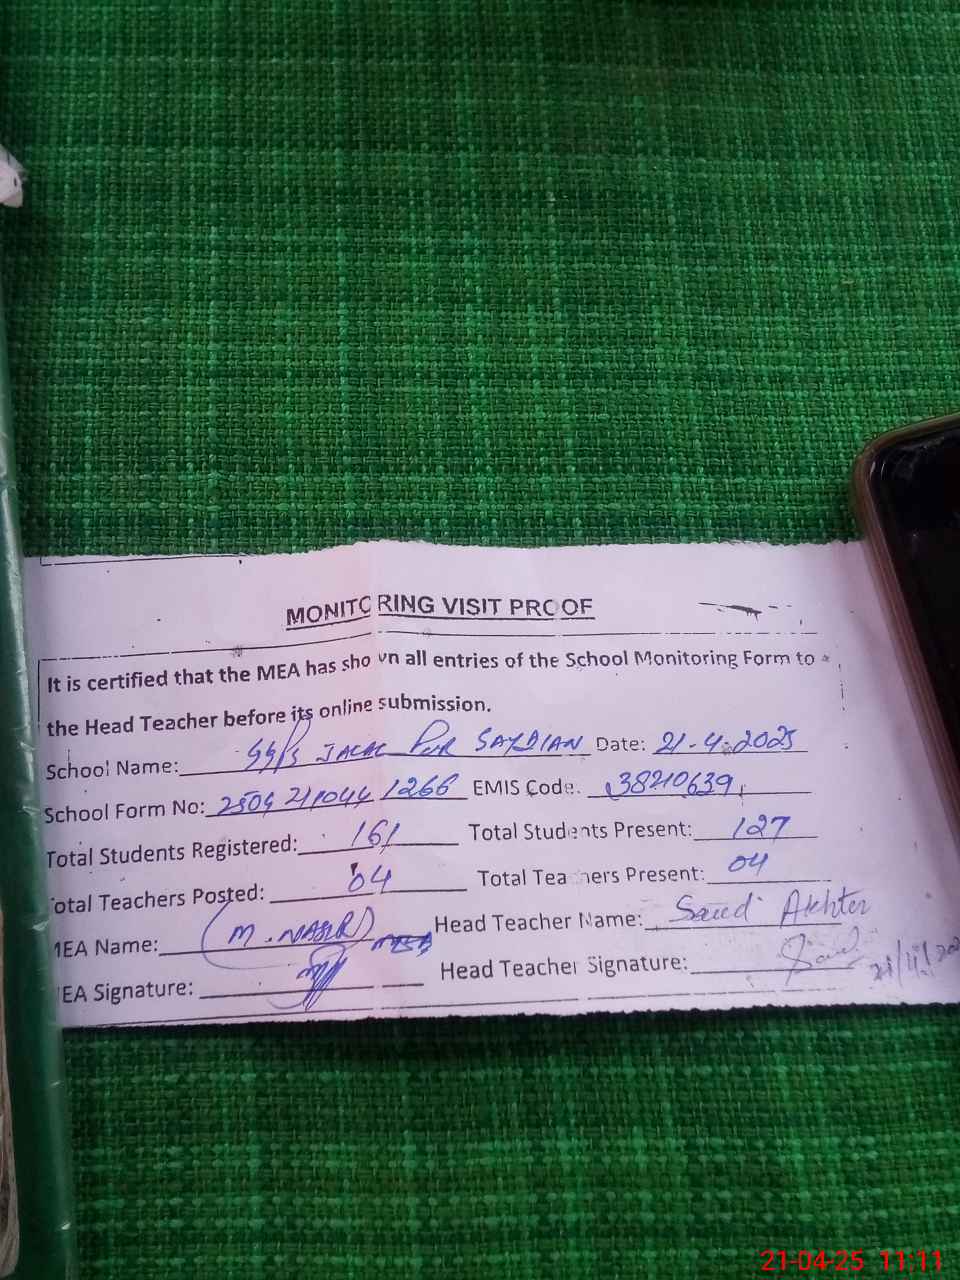 MONITORING VISIT PROOF
It is certified that the MEA has shown all entries of the School Monitoring Form to
the Head Teacher before its online submission.
School Name: JALAL PUR SAYDIAN Date: 21-4-2025
School Form No: 2504 211044 1266 EMIS Code: 38210639
Total Students Registered: 161 Total Students Present: 127
otal Teachers Posted: 04 Total Teachers Present: 04
MEA Name: (M. NASIR) MEA Head Teacher Name: Saud Akhter
EA Signature: Head Teacher Signature:
21-04-25 11:11